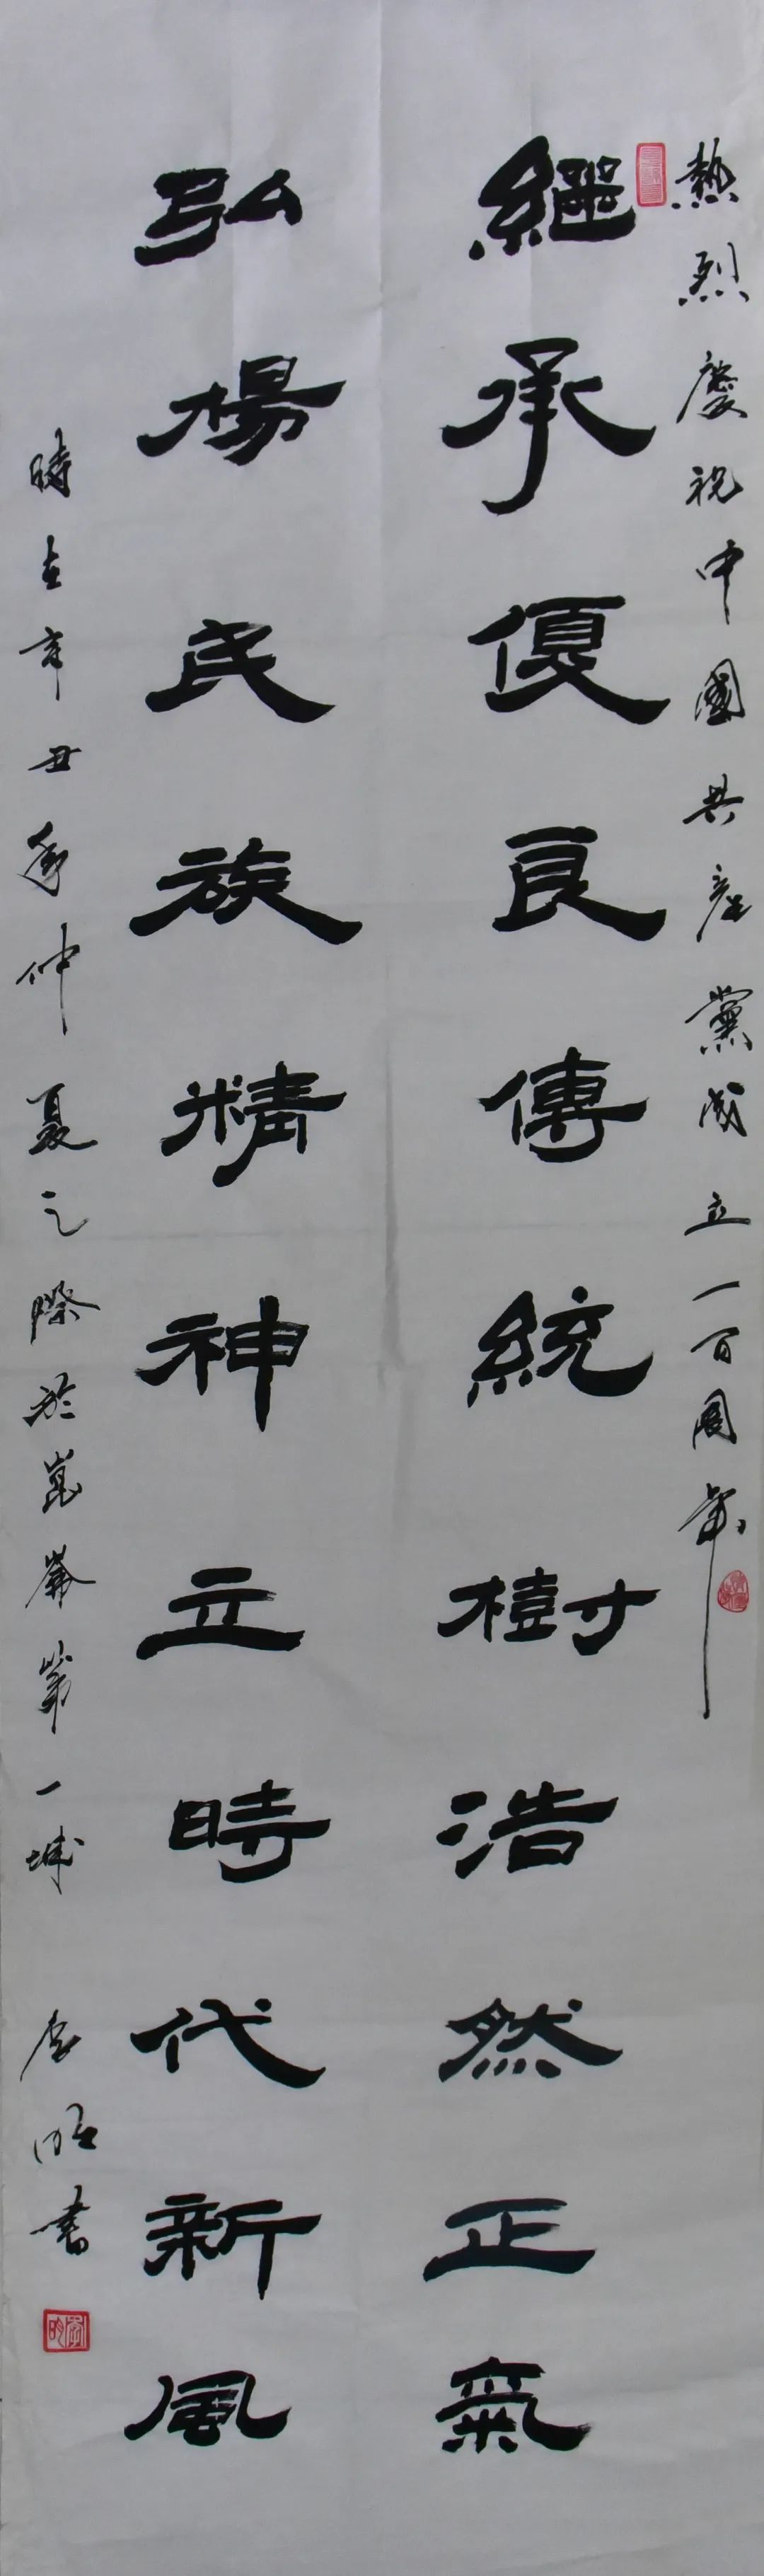 熱烈慶祝中國共產黨成立一百周年
繼承優良傳統樹浩然正氣
弘楊民族精神立時代新風
時在辛丑年仲夏之際於崑崙第一城 李明書